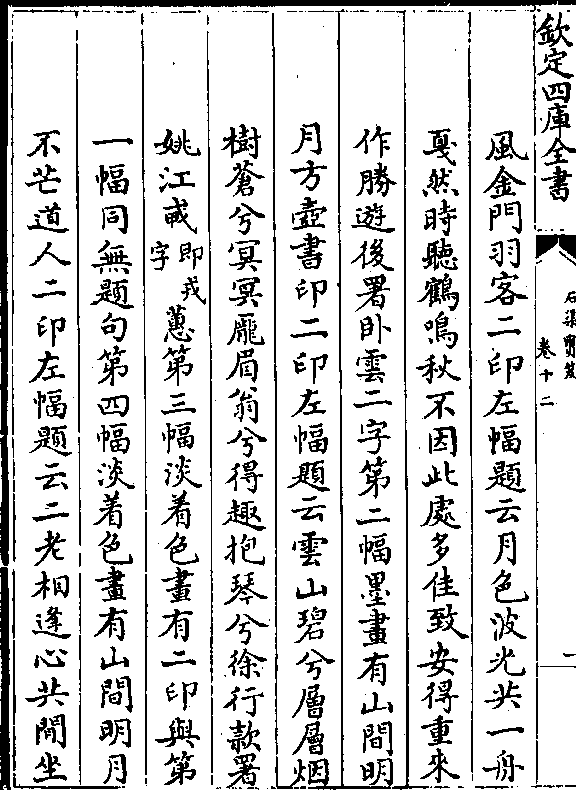 欽定四庫全書
石渠寶笈
卷十二
一
風金門羽客二印左幅題云月色波光共一舟
戛然時聽鶴鳴秋不因此處多佳致安得重來
作勝遊後署卧雲二字第二幅墨畫有山間明
月方壺書印二印左幅題云雲山碧兮層層烟
樹蒼兮冥冥龐眉翁兮得趣抱琴兮徐行款署
姚江㦯即戎字蕙第三幅淡着色畫有二印與第
一幅同無題句第四幅淡着色畫有山間明月
不芒道人二印左幅題云二老相逢心共閒坐